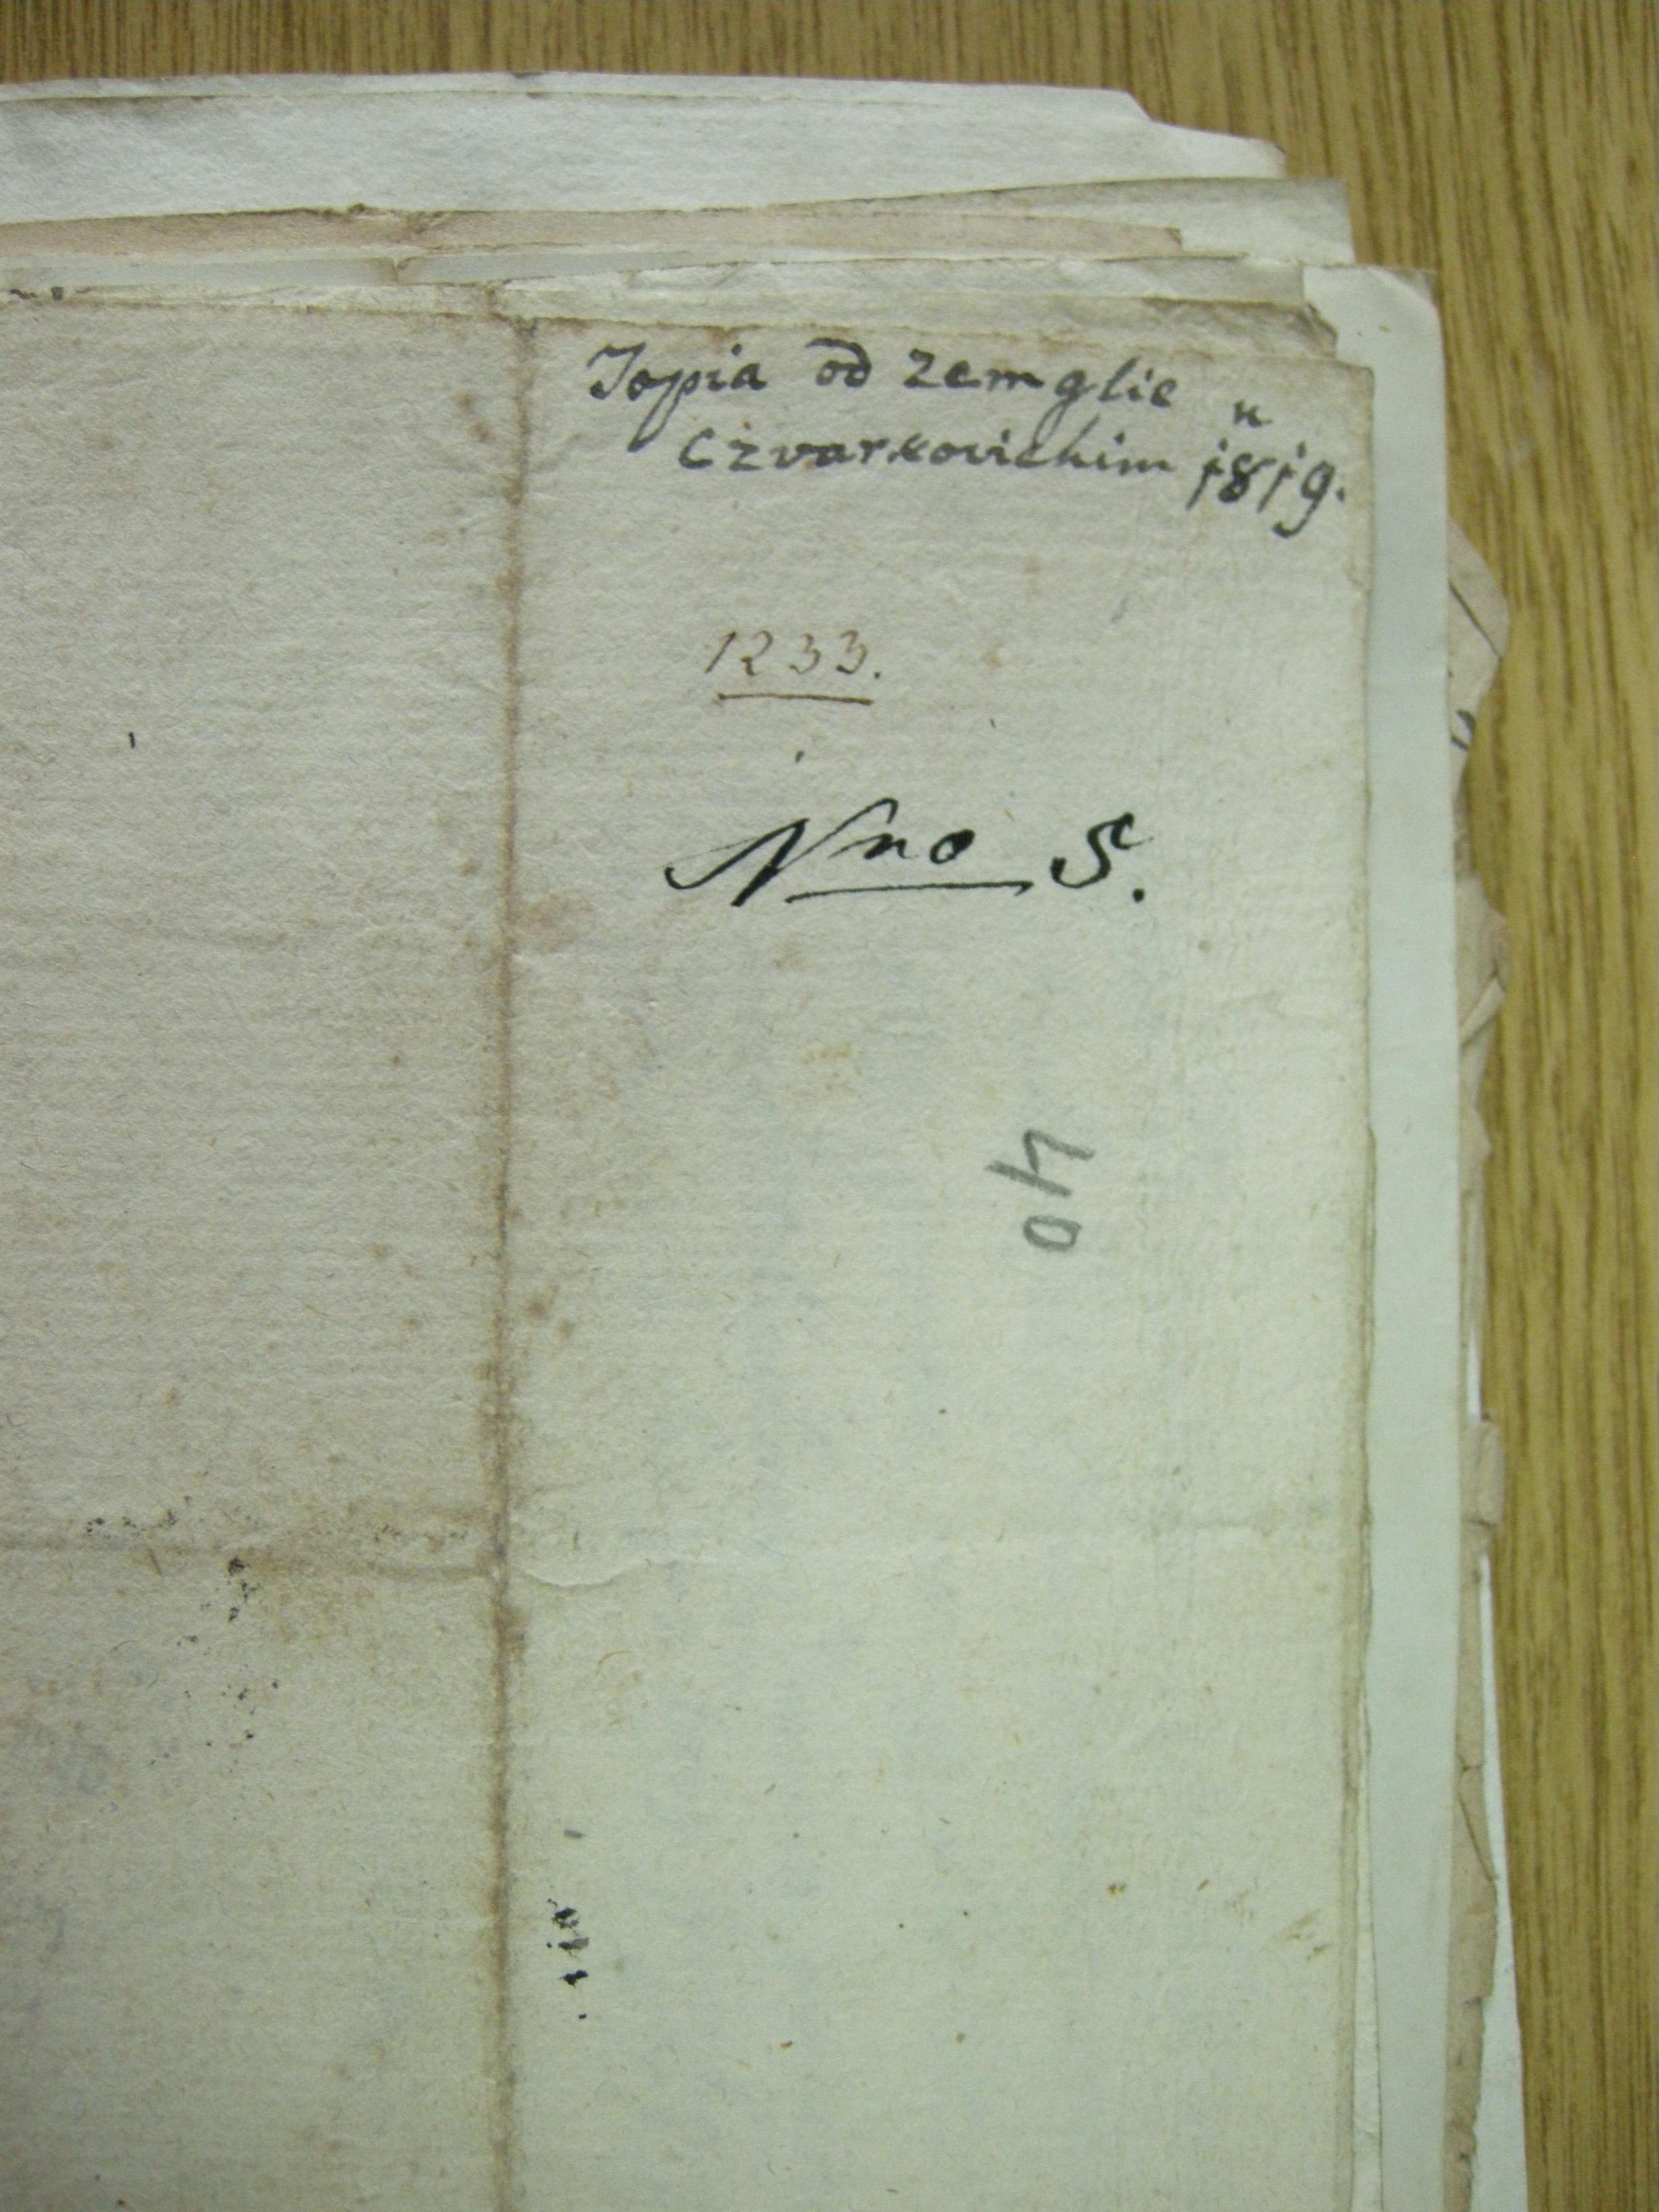 Copia od zemglie u
Czvarkovichim 1819.
1233.
Nno 5.
40